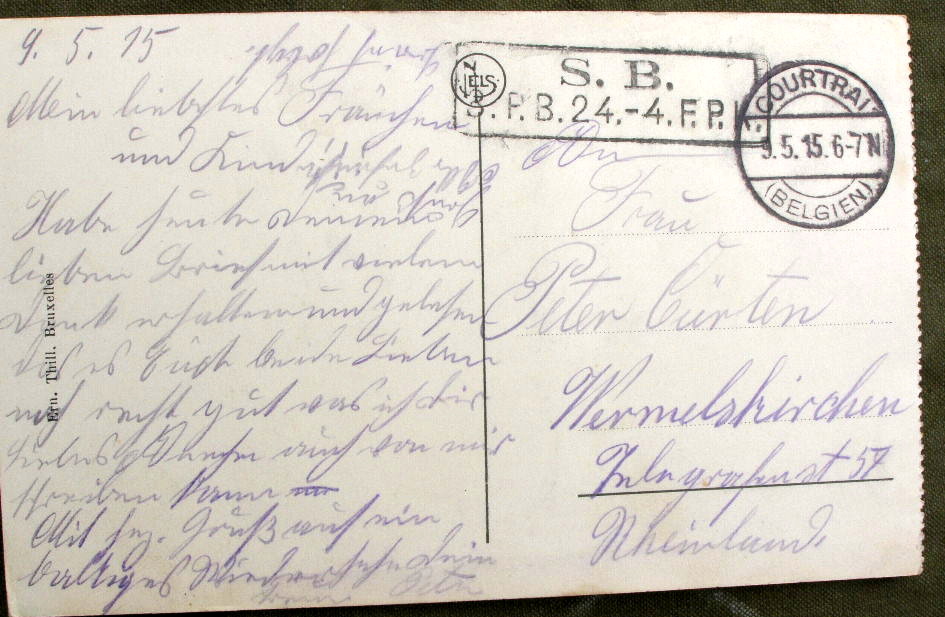 9. 5. 15
Mein liebstes Frauchen
und Kind
Habe heute deinen
lieben Brief mit vielem
Dank erhalten und gelesen
das es Euch beide Lieben
noch recht gut was ich dir
liebes auch von mir
schreiben kann
Mit hez. Gruß auf ein
baldiges Wiedersehn dein
Peter
NELS
S. B.
P. B. 24.-4. F. P.
COURTRAI
9.5.15.6-7N
(BELGIEN)
An
Frau
Peter Cürten
Wermelskirchen
Telegrafenst 57
Rheinland.
Ern. Thill. Bruxelles